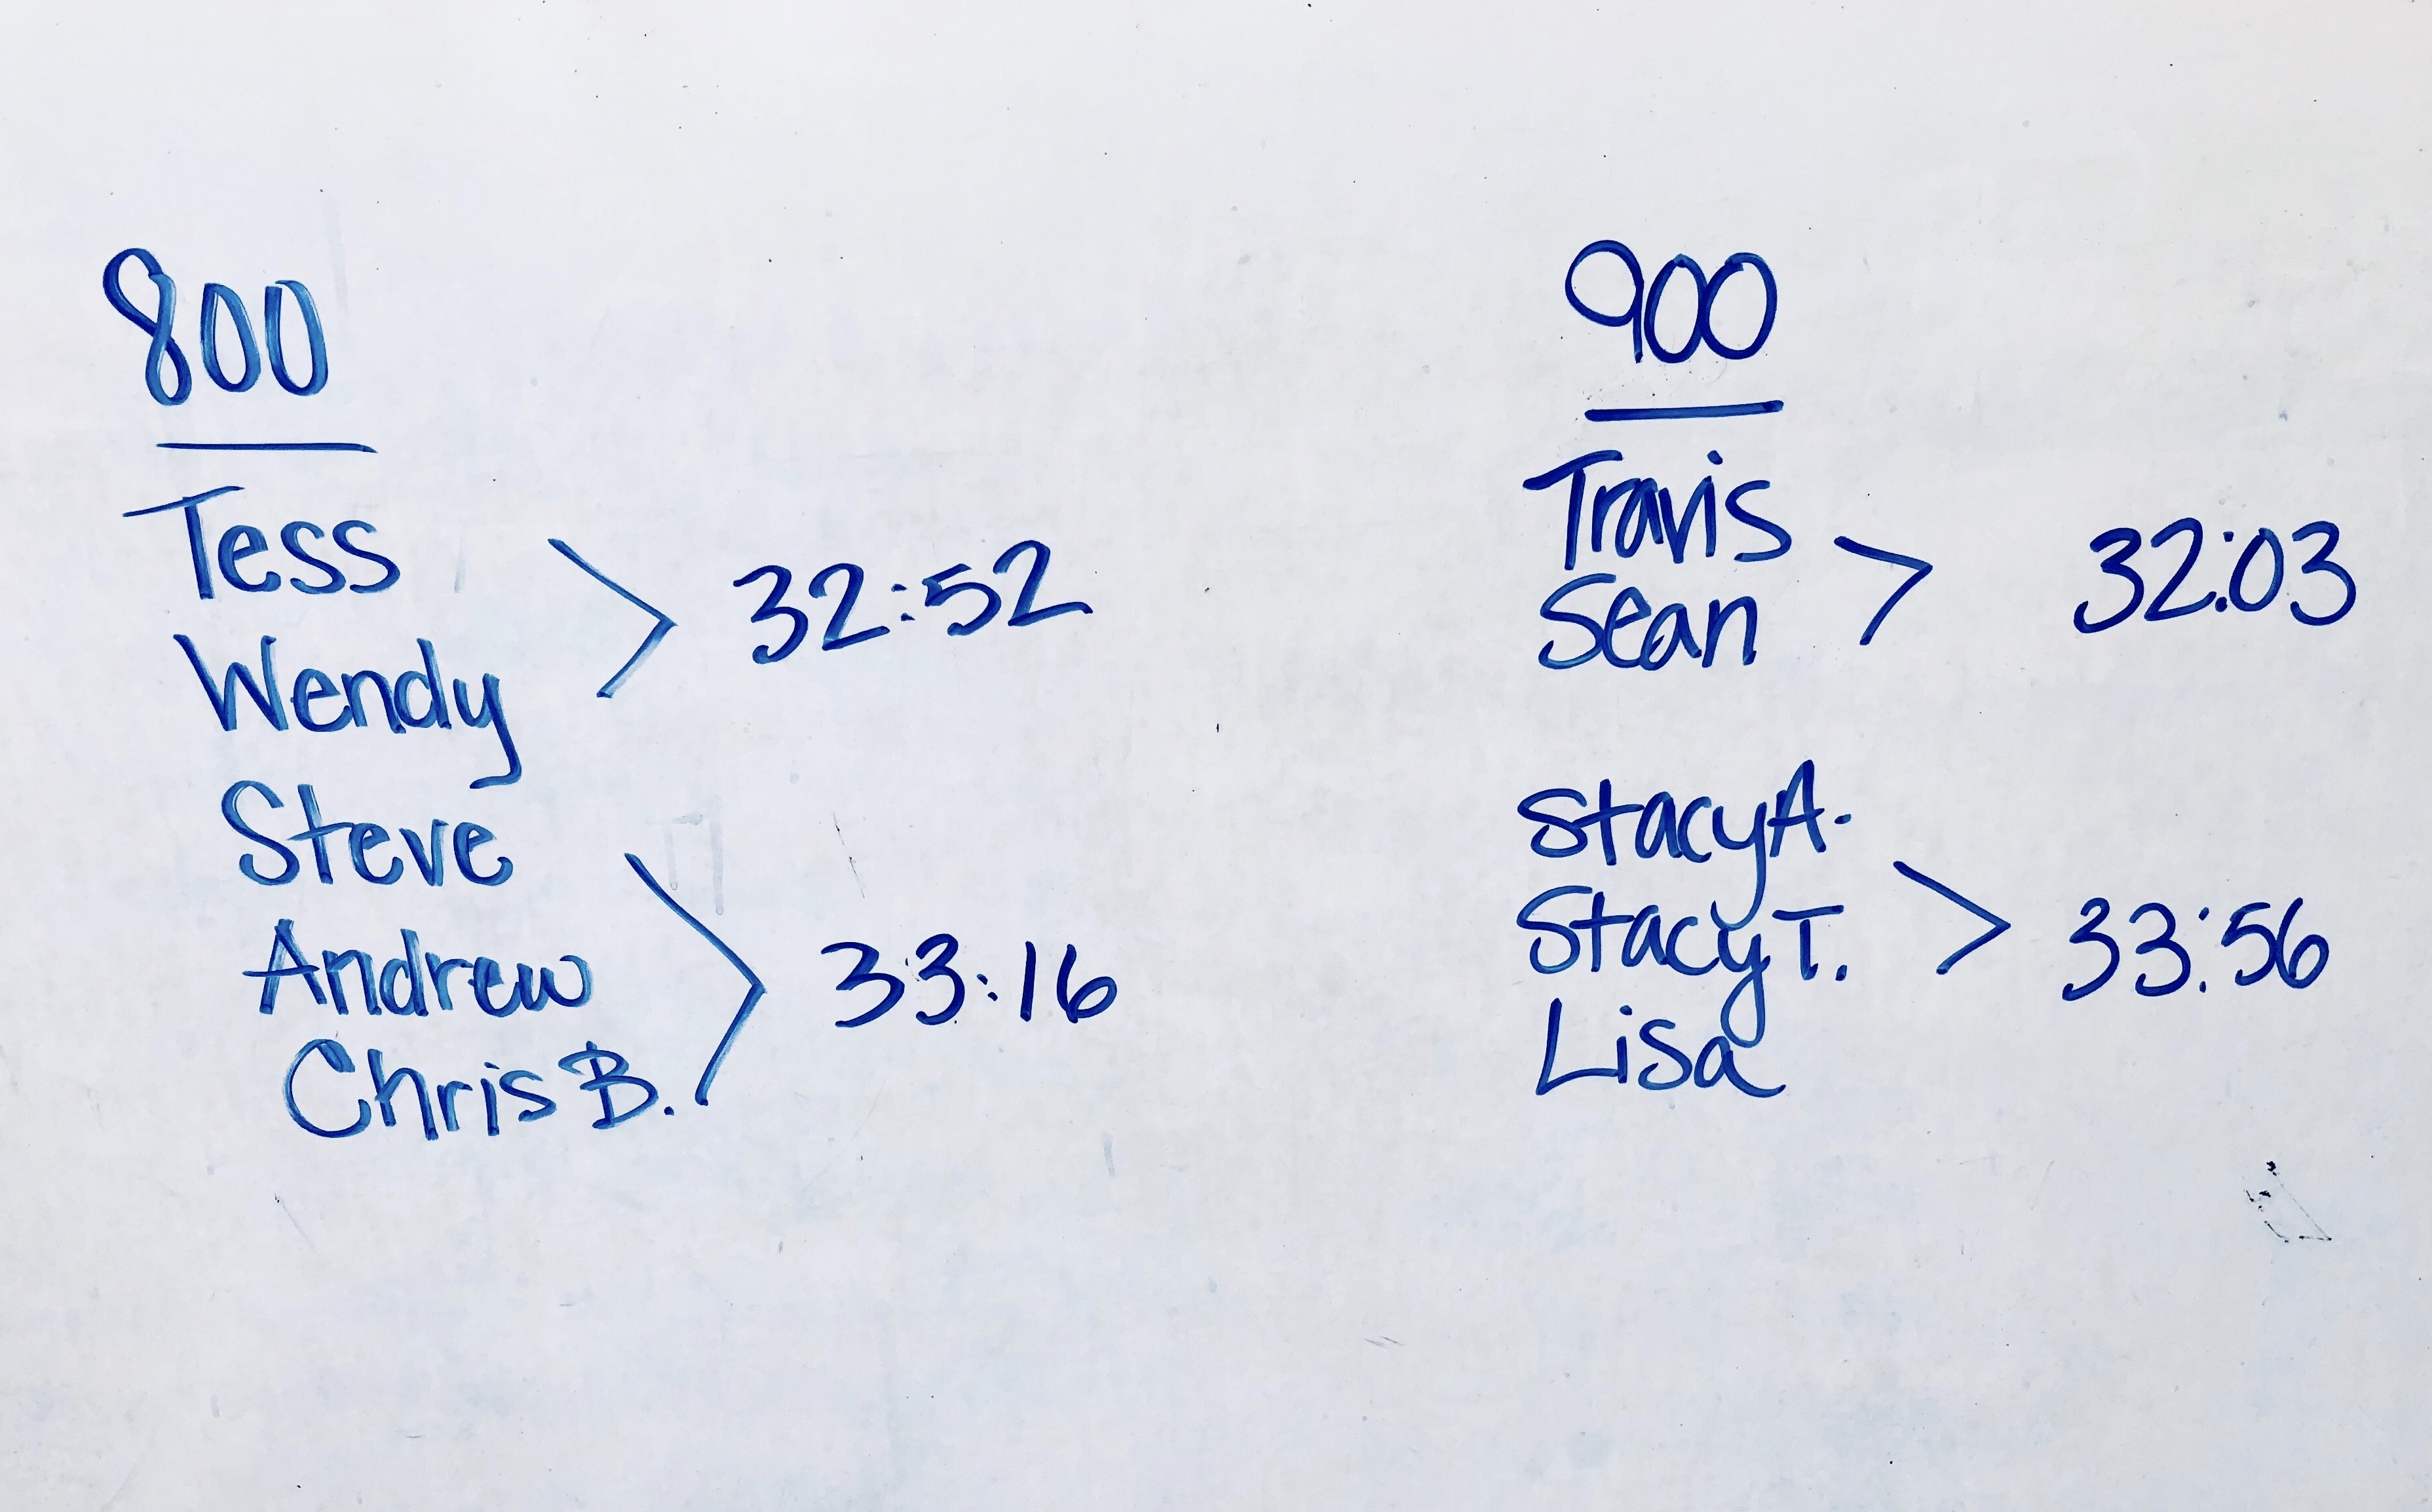 800
Tess
Wendy
> 32:52
Steve
Andrew
Chris B.
> 33:16
900
Travis
Sean
> 32:03
Stacy A.
Stacy T.
Lisa
> 33:56